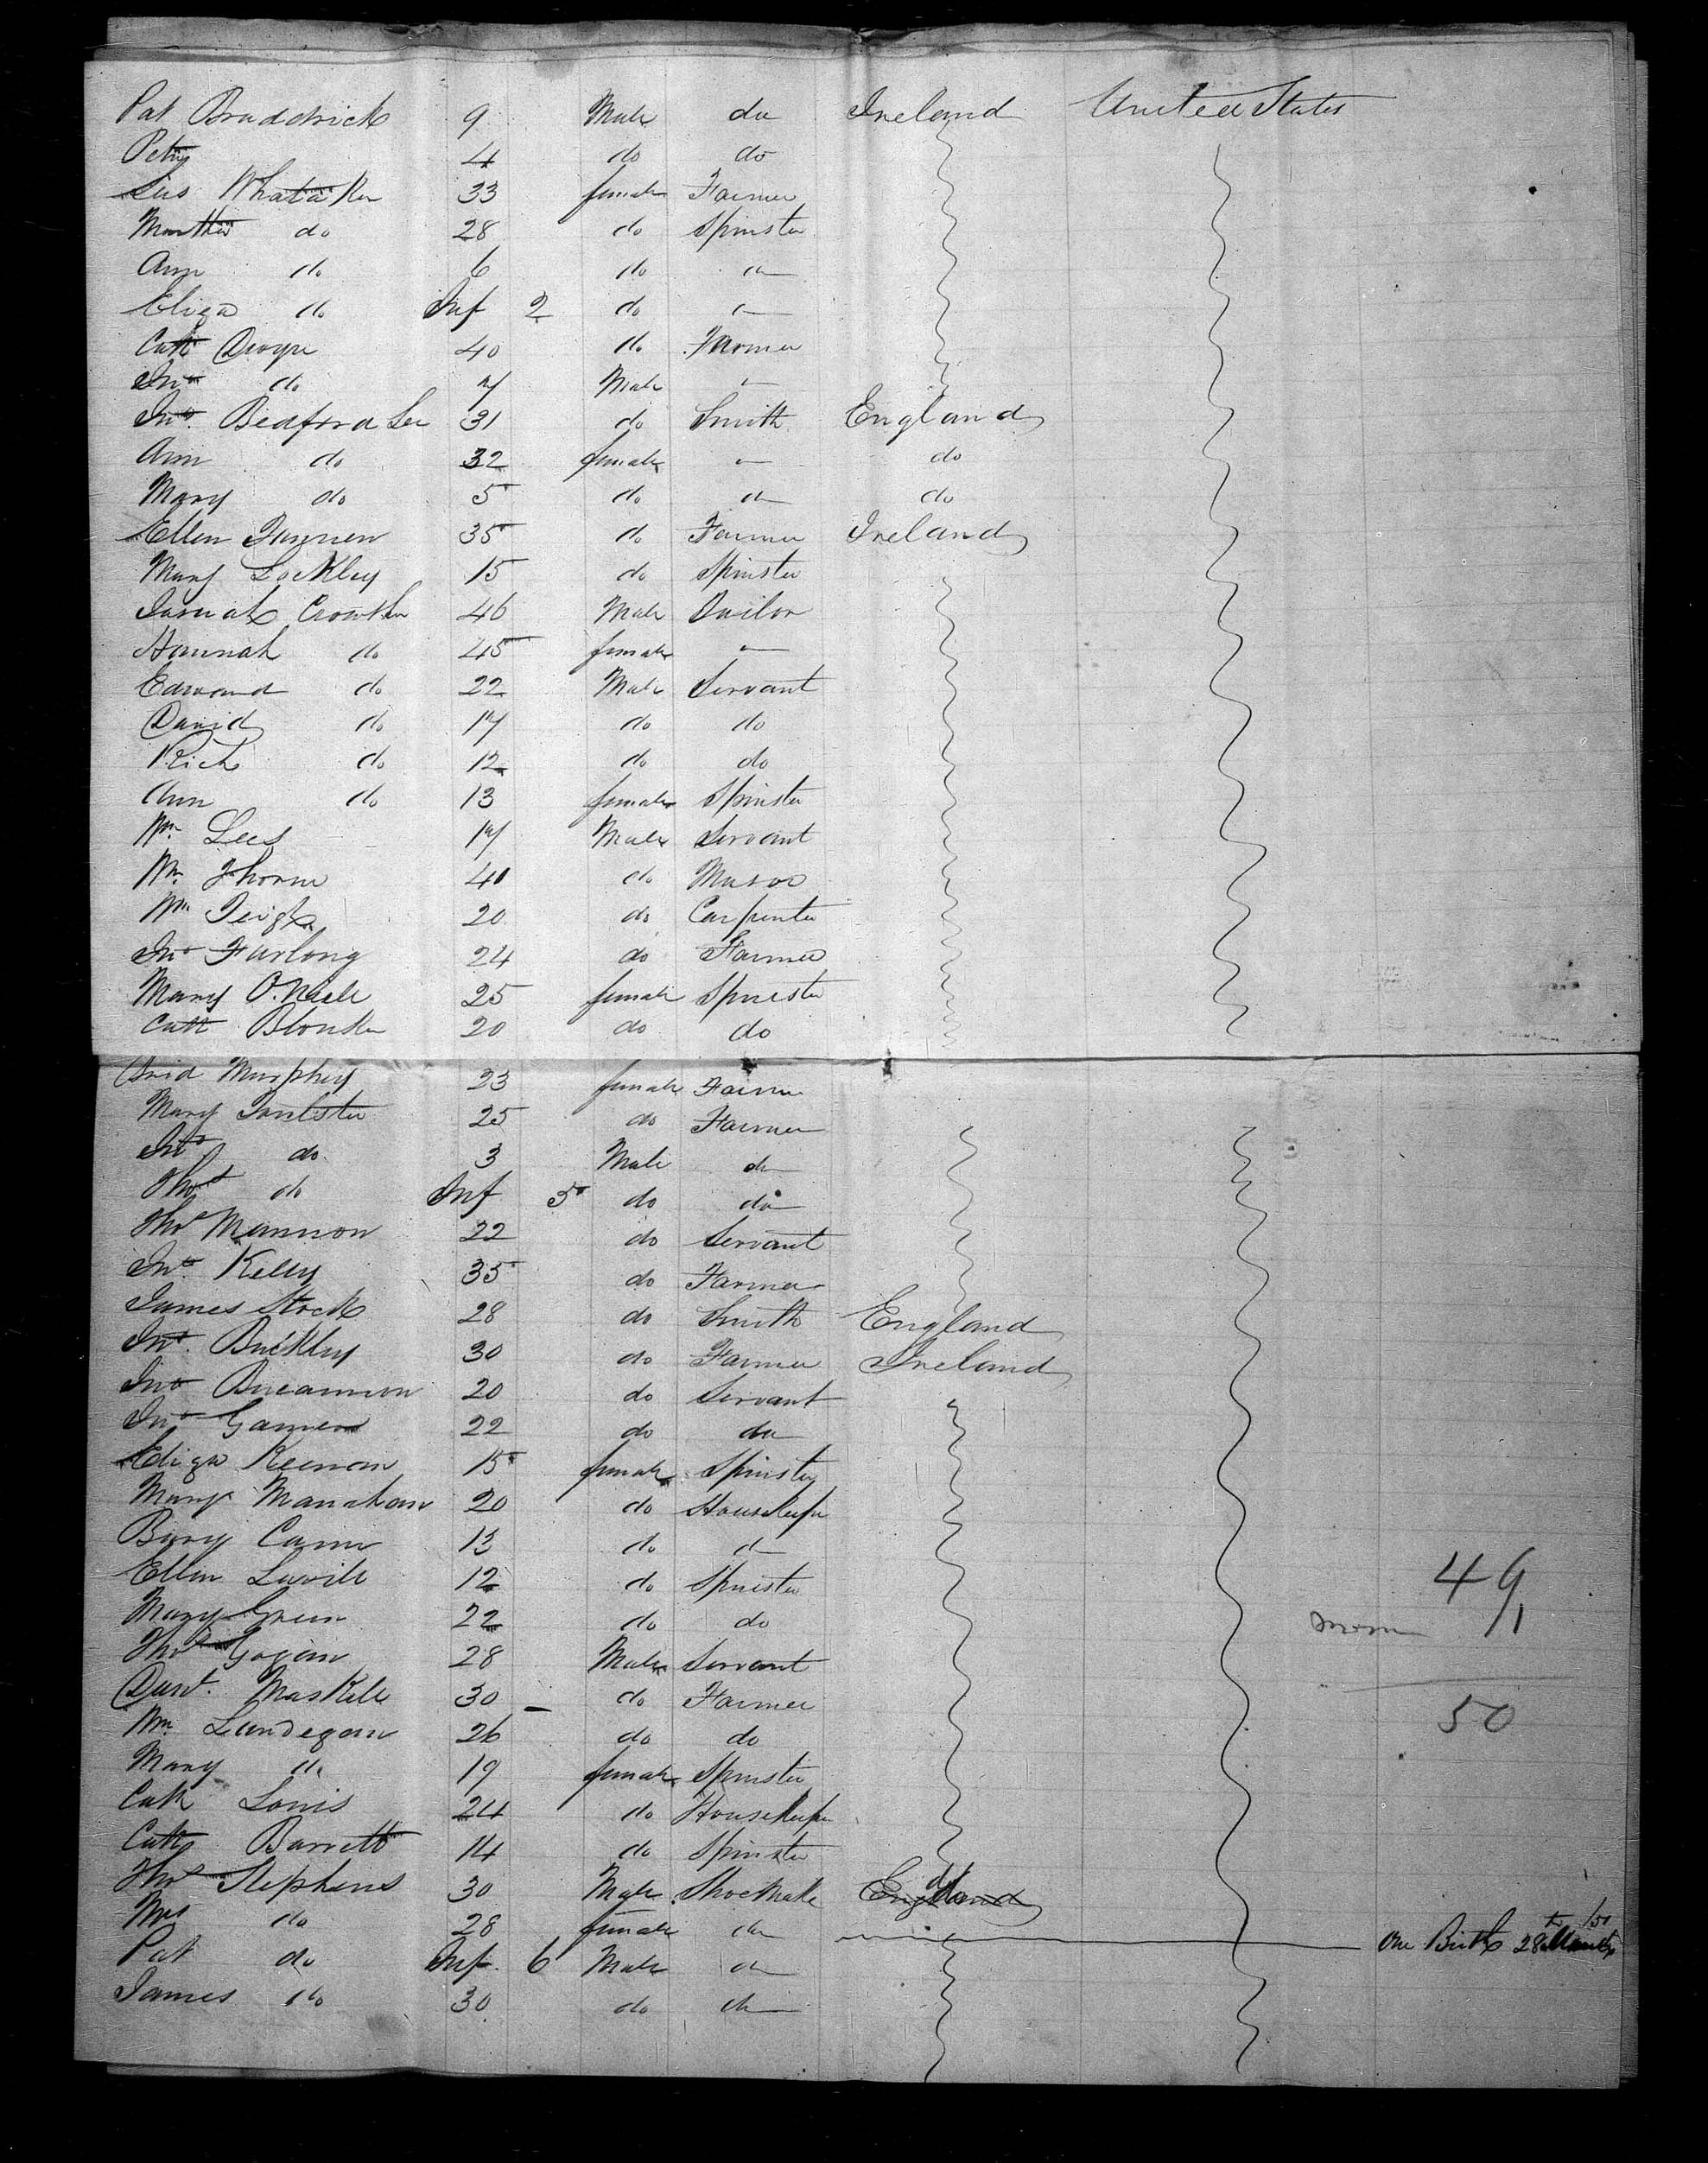 Pat Braddrick 9 Male do Ireland United States
Peter 4 do do
33 female Farmer
Martha do 28 do Spinster
Ann do 6 do do
Eliza do Inf 2 do
Cath Dwyre 40 do Farmer
Jno do 7 Male
Jno. Bedford Lee 31 do Smith England
Ann do 32 female do
Mary do 5 do do do
Ellen 35 do Farmer Ireland
Mary Lockley 15 do Spinster
Crowther 46 Male
Hannah do 45 female
Edward do 22 Male Servant
David do 17 do do
Rich do 12 do do
Ann do 13 female Spinster
Wm. Lees 17 Male Servant
Wm. Thorne 40 do Mason
Wm 20 do Carpenter
Jno Furlong 24 do Farmer
Mary O.Neile 25 female Spinster
Cath 20 do do
Brid Murphy 23 female Farmer
Mary 25 do Farmer
Jno do 3 Male do
Thos do Inf 5 do do
Thos Mannion 22 do Servant
Jno. Kelly 35 do Farmer
James Stock 28 do Smith England
Jno. Buckley 30 do Farmer Ireland
Jno 20 do Servant
Jno 22 do do
Eliza Keenan 15 female Spinster
Mary Manahan 20 do Housekeeper
13 do do
Ellen 12 do Spinster
Mary Green 22 do do 49
Thos Gogan 28 Male Servant 1
Maskell 30 do Farmer
Wm Lundegan 26 do do 50
Mary do 19 female Spinster
Cath 24 do Housekeeper
Cath Barrett 14 do Spinster
Thos Stephens 30 Male Shoemake England do
Mrs do 28 female do One Birth 28th
Pat do Inf. 6 Male do
James do 30 do do